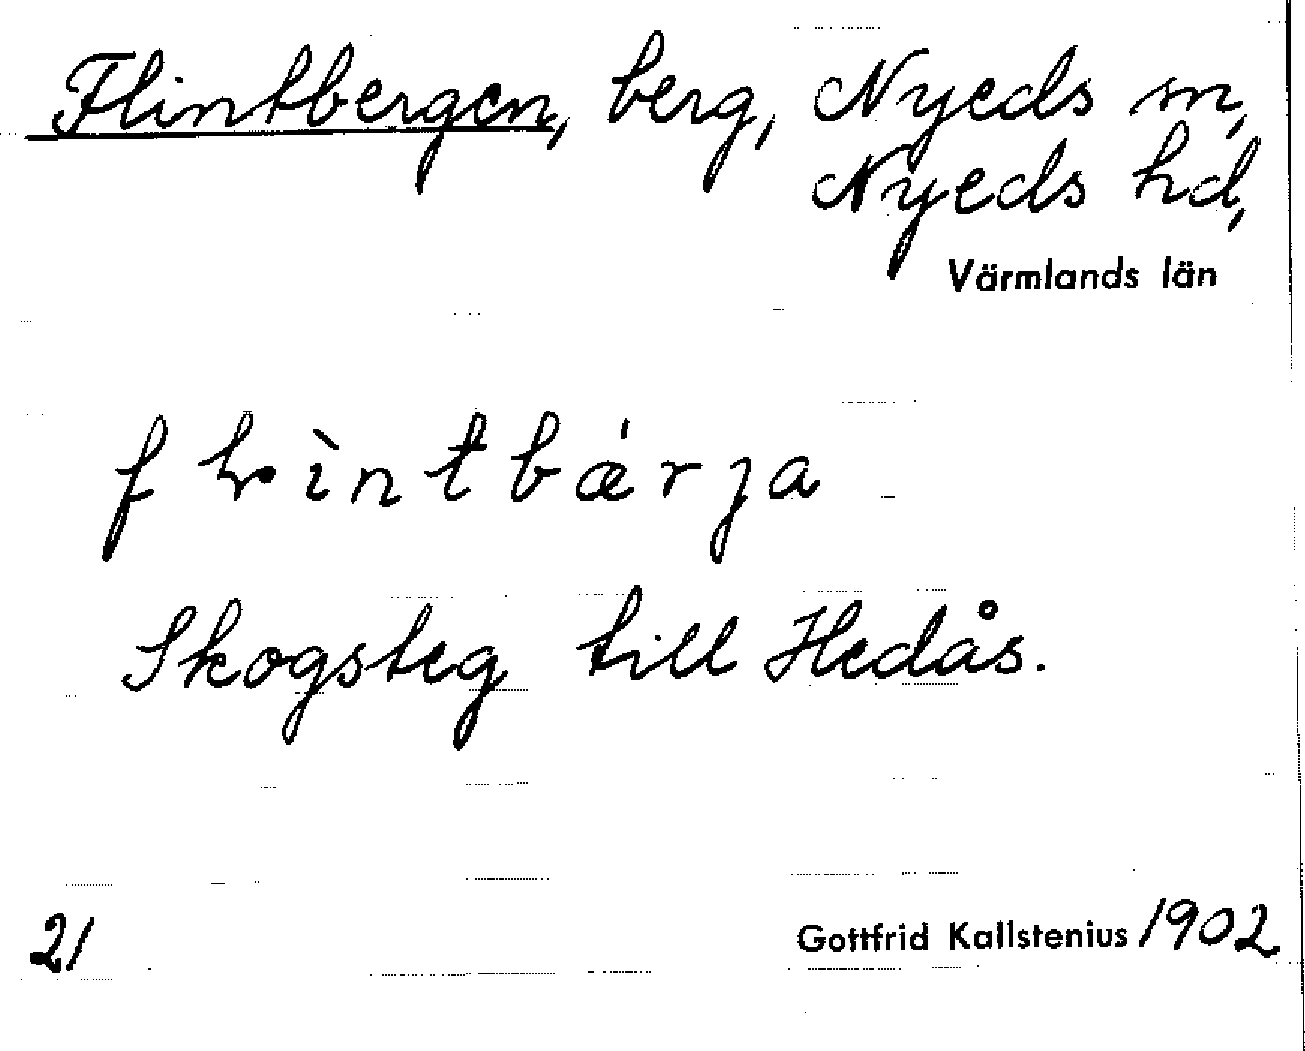 Flintbergen, berg, Nyeds sn,
Nyeds hd,
Värmlands län
fɫìntbǽrja
Skogsteg till Hedås.
21
Gottfrid Kallstenius 1902